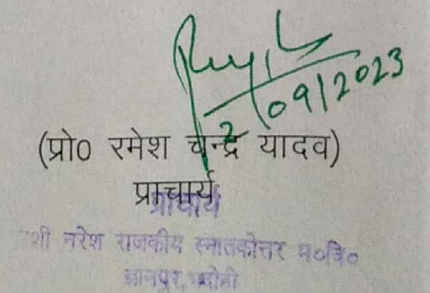 2/09/2023
(प्रो0 रमेश चन्द्र यादव)
प्राचार्य
प्राचार्य
शी नरेश राजकीय स्नातकोत्तर म०वि०
ज्ञानपुर, भदोही